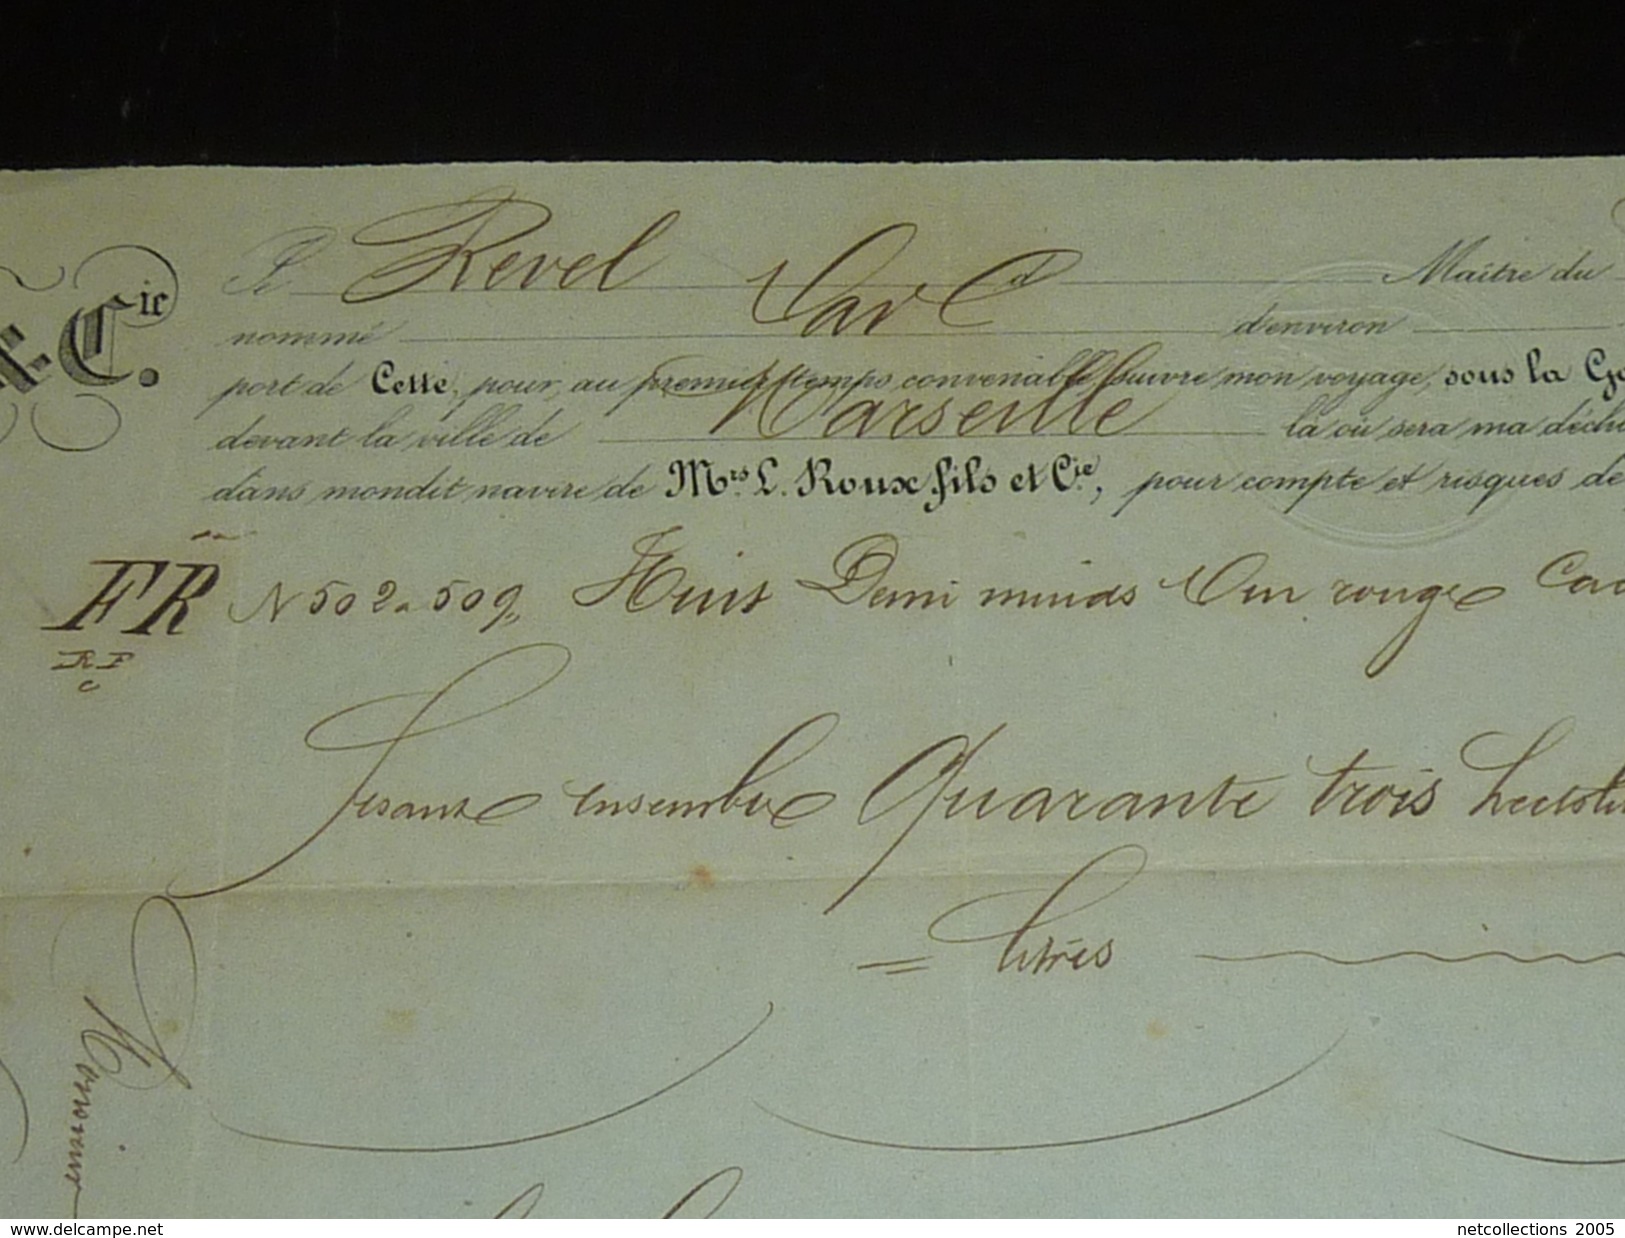 & Cie.
Revel Maître du
nommé Var d'environ
port de Cette, pour, au premier temps convenable suivre mon voyage, sous la
devant la ville de Marseille là où sera ma
dans mondit navire de Mrs. L. Roux fils et Cie, pour compte et risques de
FR N 502 a 509, Huit Demi muids Vin rouge
R F
C
fesant ensemble Quarante trois
= Litres
www.delcampe.net
netcollections 2005